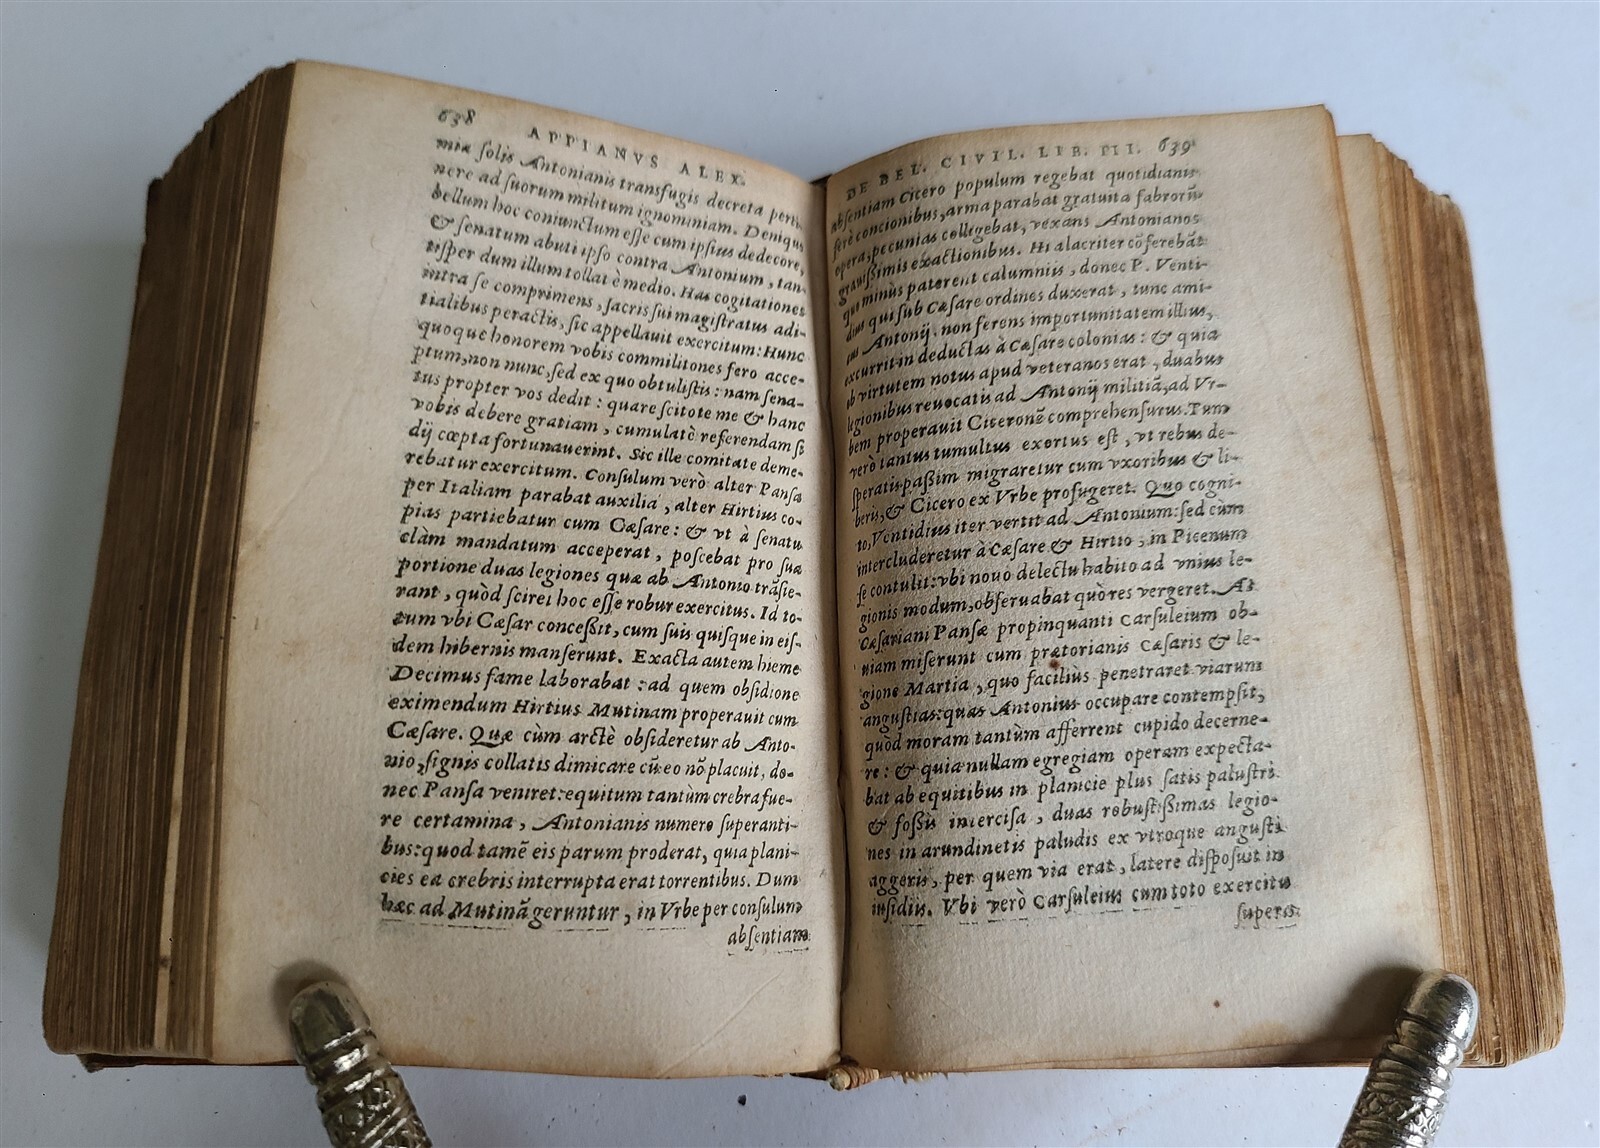 638 APPIANVS ALEX.
miæ solis Antonianis transfugis decreta perti-
nere ad suorum militum ignominiam. Denique
bellum hoc coniunctum esse cum ipsius dedecore,
& senatum abuti ipso contra Antonium, tan-
tisper dum illum tollat è medio. Has cogitationes
intra se comprimens, sacris sui magistratus adi-
tialibus peractis, sic appellauit exercitum: Hunc
quoque honorem vobis commilitones fero acce-
ptum, non nunc, sed ex quo obtulistis: nam sena-
tus propter vos dedit: quare scitote me & hanc
vobis debere gratiam, cumulatè referendam si
dij cœpta fortunauerint. Sic ille comitate deme-
rebatur exercitum. Consulum verò alter Pansa
per Italiam parabat auxilia, alter Hirtius co-
pias partiebatur cum Cæsare: & vt à senatu
clàm mandatum acceperat, poscebat pro sua
portione duas legiones quæ ab Antonio trãsie-
rant, quòd sciret hoc esse robur exercitus. Id to-
tum vbi Cæsar concessit, cum suis quisque in eis-
dem hibernis manserunt. Exacta autem hieme
Decimus fame laborabat: ad quem obsidione
eximendum Hirtius Mutinam properauit cum
Cæsare. Quæ cùm arctè obsideretur ab Anto-
nio, signis collatis dimicare cũ eo nõ placuit, do-
nec Pansa veniret: equitum tantùm crebra fue-
re certamina, Antonianis numero superanti-
bus: quod tamẽ eis parum proderat, quia plani-
cies ea crebris interrupta erat torrentibus. Dum
hæc ad Mutinã geruntur, in Vrbe per consulum
absentiam
DE BEL. CIVIL. LIB. III. 639
absentiam Cicero populum regebat quotidianis
ferè concionibus, arma parabat gratuita fabrorũ
opera, pecunias colligebat, vexans Antonianos
grauissimis exactionibus. Hi alacriter cõferebãt
quo minùs paterent calumniis, donec P. Venti-
dius qui sub Cæsare ordines duxerat, tunc ami-
cus Antonij, non ferens importunitatem illius,
excurrit in deductas à Cæsare colonias: & quia
ob virtutem notus apud veteranos erat, duabus
legionibus reuocatis ad Antonij militiã, ad Vr-
bem properauit Ciceronẽ comprehensurus. Tum
verò tantus tumultus exortus est, vt rebus de-
speratis passim migraretur cum vxoribus & li-
beris, & Cicero ex Vrbe profugeret. Quo cogni-
to, Ventidius iter vertit ad Antonium: sed cùm
intercluderetur à Cæsare & Hirtio, in Picenum
se contulit: vbi nouo delectu habito ad vnius le-
gionis modum, obseruabat quò res vergeret. At
Cæsariani Pansæ propinquanti Carsuleium ob-
uiam miserunt cum prætorianis Cæsaris & le-
gione Martia, quo faciliùs penetraret viarum
angustias: quas Antonius occupare contempsit,
quòd moram tantùm afferrent cupido decerne-
re: & quia nullam egregiam operam expecta-
bat ab equitibus in planicie plus satis palustri
& fossis intercisa, duas robustissimas legio-
nes in arundinetis paludis ex vtroque angusti
aggeris, per quem via erat, latere disposuit in
insidiis. Vbi verò Carsuleius cum toto exercitu
supera